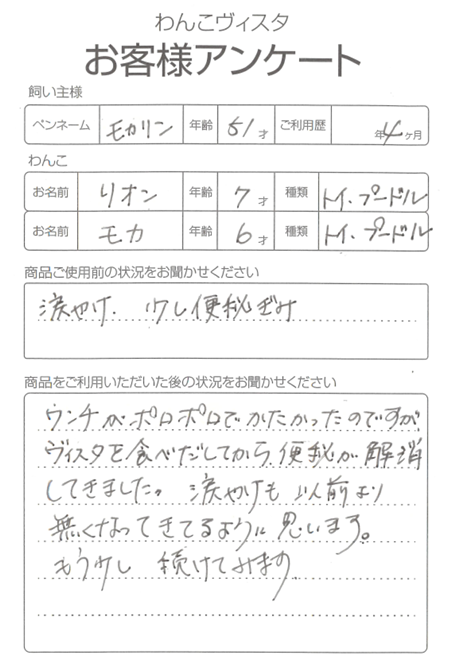 わんこヴィスタ
お客様アンケート
飼い主様
ペンネーム モカリン 年齢 51才 ご利用歴 年4ヶ月
わんこ
お名前 リオン 年齢 7才 種類 トイ・プードル
お名前 モカ 年齢 6才 種類 トイ・プードル
商品ご使用前の状況をお聞かせください
涙やけ. 少し便秘ぎみ
商品をご利用いただいた後の状況をお聞かせください
ウンチがポロポロでかたかったのですが、
ヴィスタを食べだしてから、便秘が解消
してきました。涙やけも以前より
無くなってきてるように思います。
もう少し続けてみます